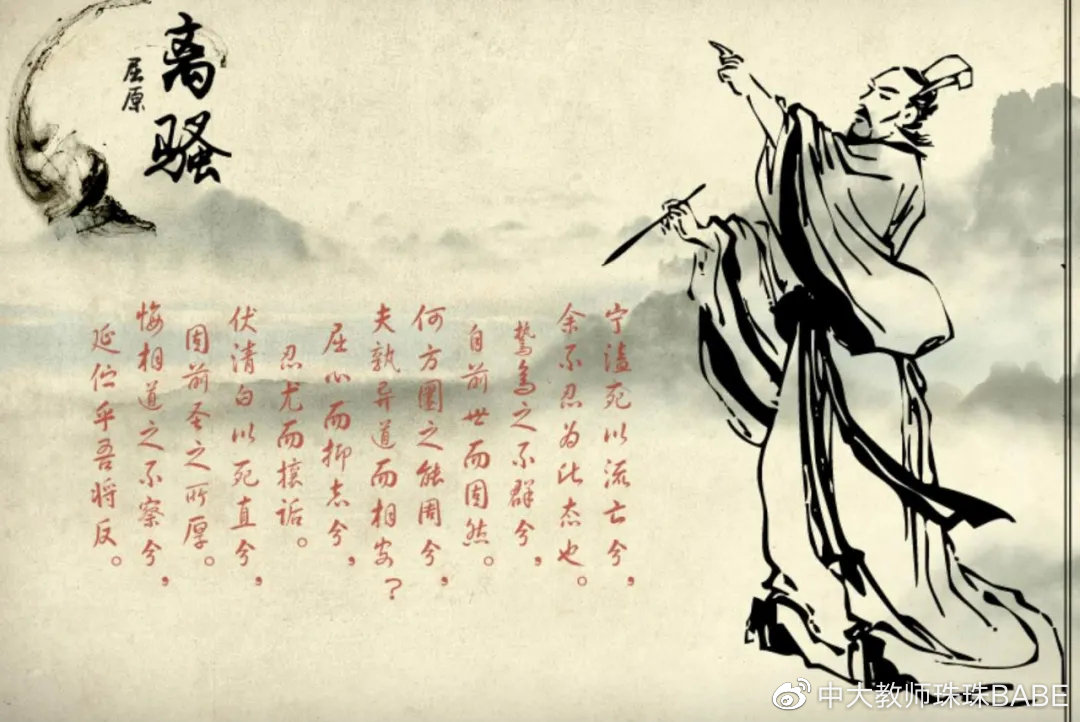 离骚
屈原
宁溘死以流亡兮，
余不忍为此态也。
鸷鸟之不群兮，
自前世而固然。
何方圜之能周兮，
夫孰异道而相安？
屈心而抑志兮，
忍尤而攘诟。
伏清白以死直兮，
固前圣之所厚。
悔相道之不察兮，
延伫乎吾将反。
中大教师珠珠BABE